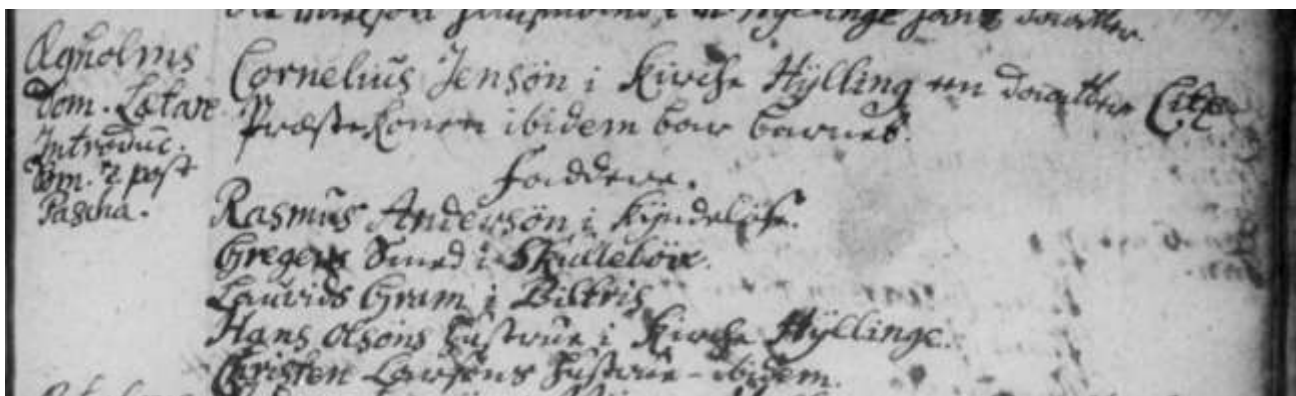 Dom. Lætare
Introduc.
Dom. 2 post
Pascha.
Cornelius Jensön i Kirche Hÿlling en daatter
Præstekonen ibidem bar barnet.
Faddere.
Rasmus Andersön i Kÿndelöse.
Gregers Smed i Skullebör.
Lauvids Gram i Biltris
Hans Olsöns hustrue i Kirche Hÿllinge.
Christen Larsöns hustrue - ibidem.